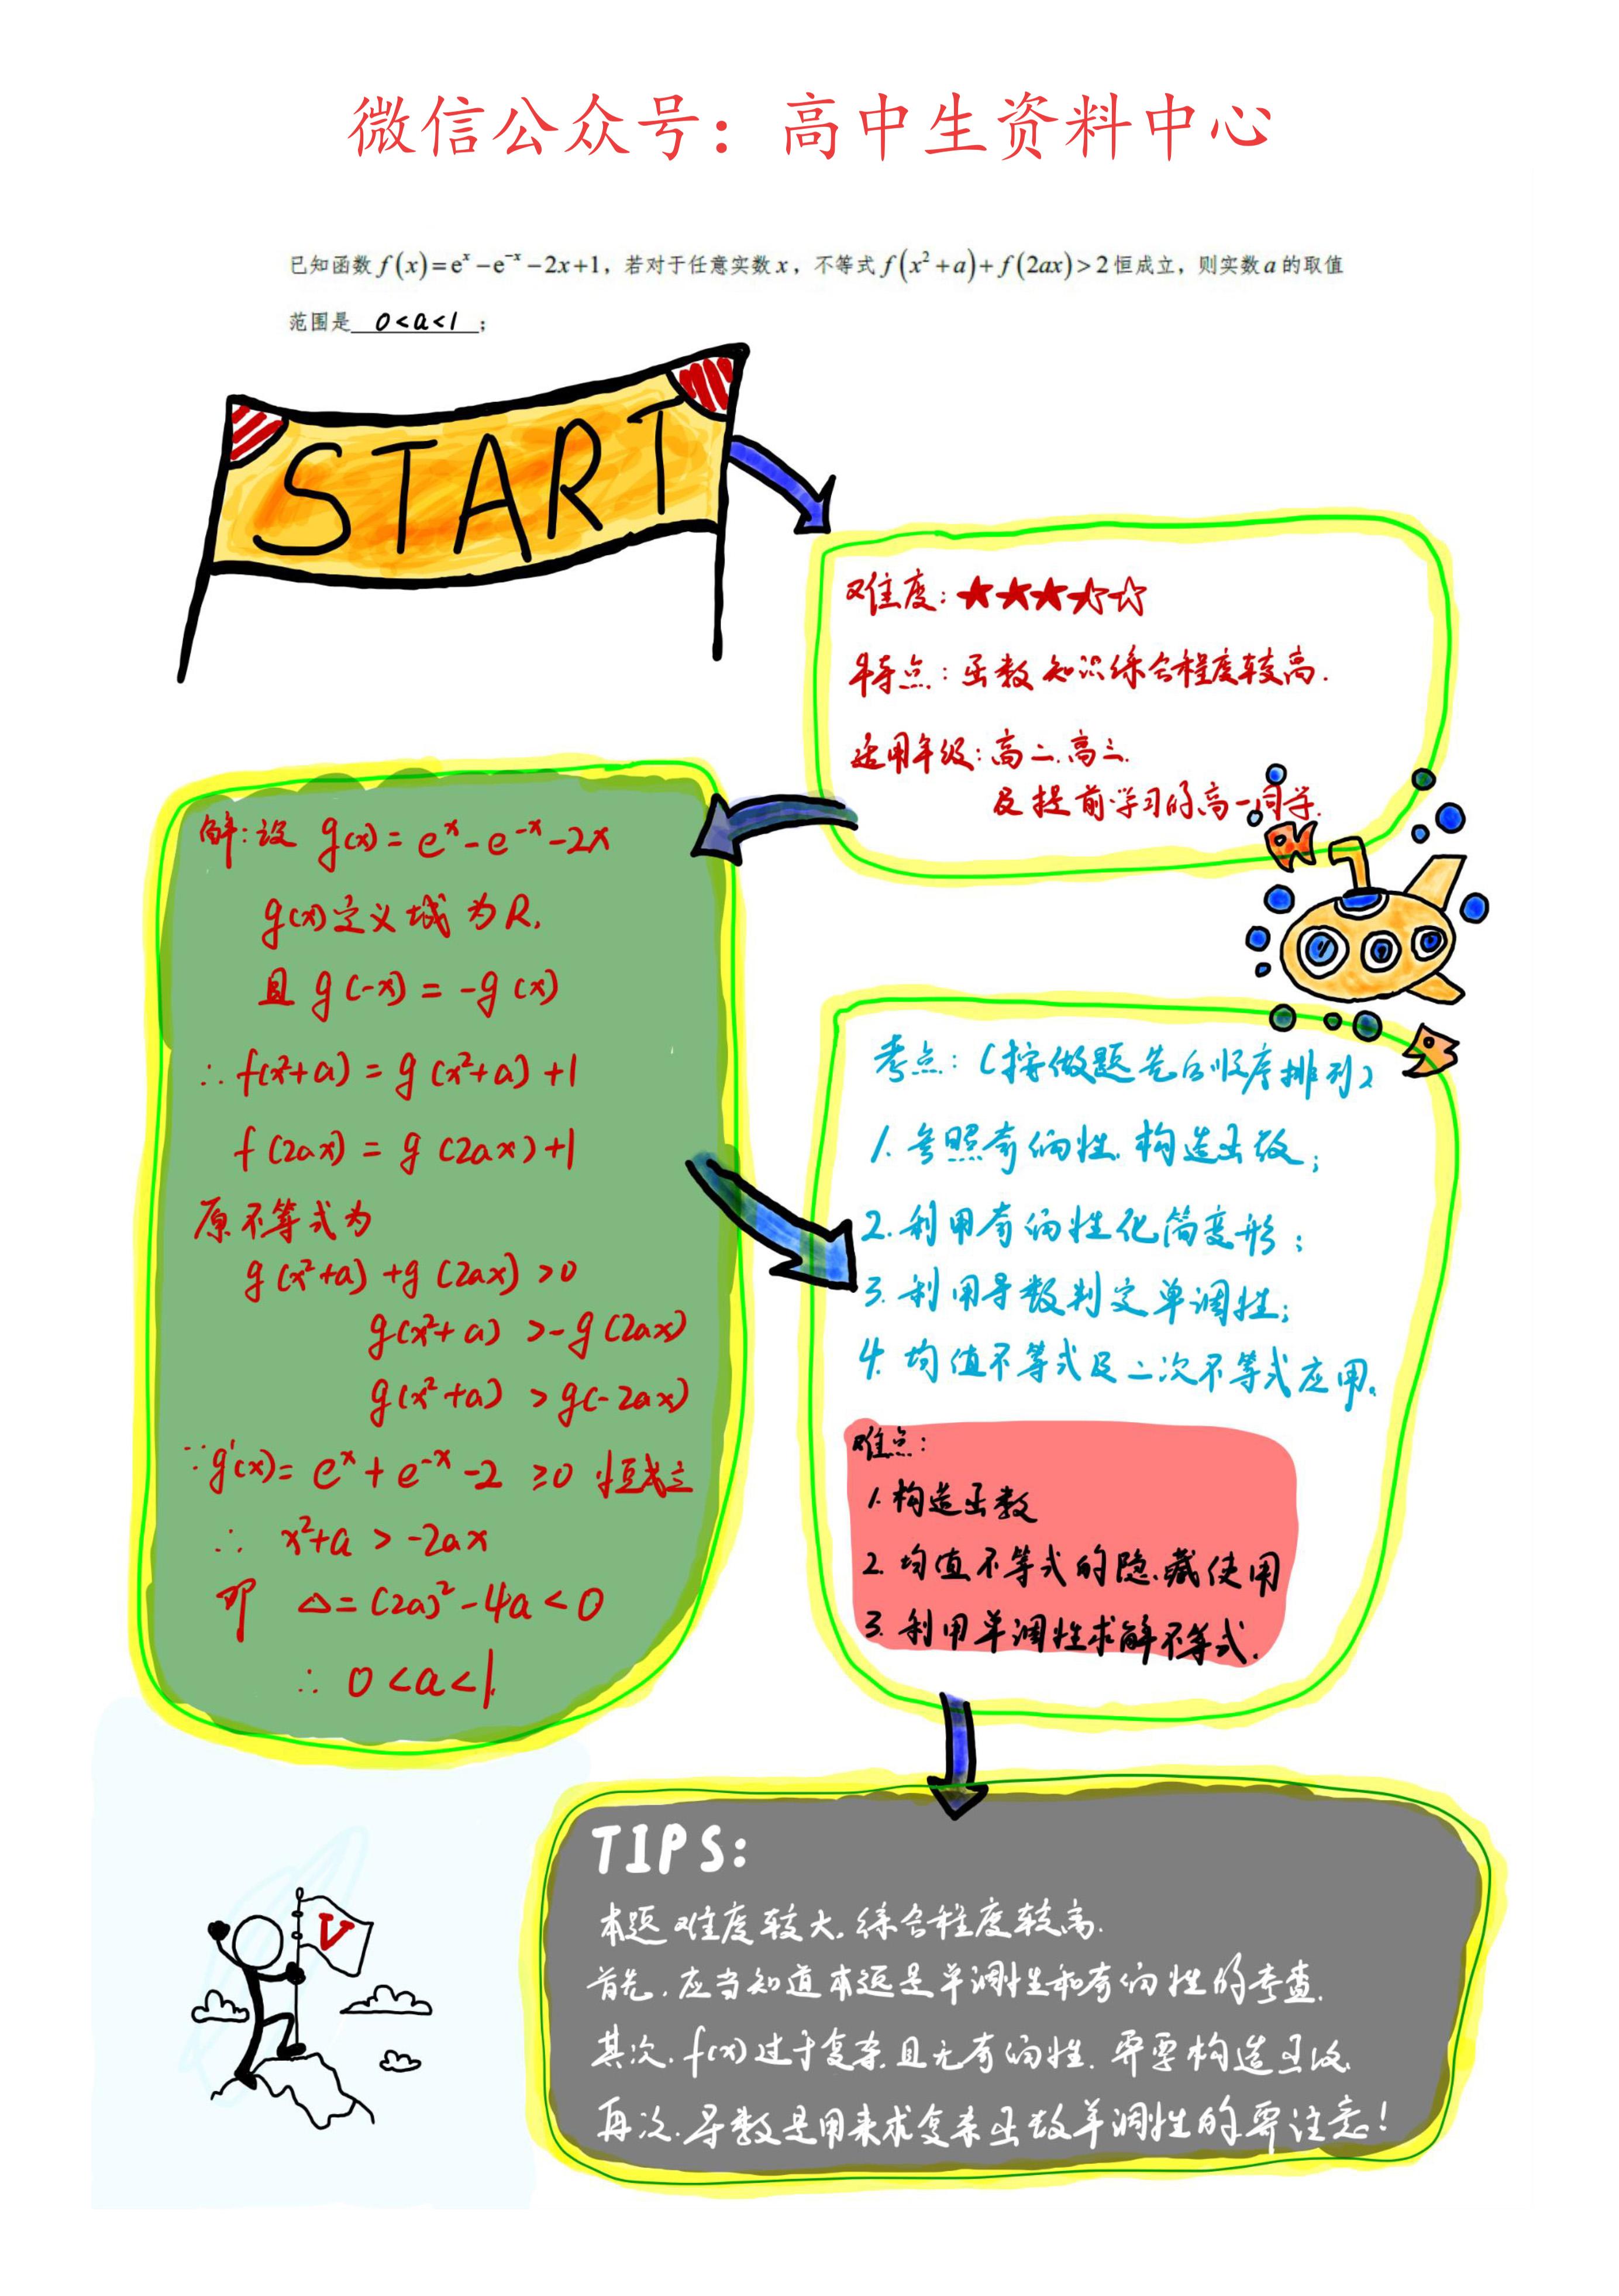 微信公众号：高中生资料中心
已知函数 f(x)=eˣ−e⁻ˣ−2x+1，若对于任意实数 x，不等式 f(x²+a)+f(2ax)>2 恒成立，则实数 a 的取值
范围是 0<a<1 ；
START
难度：★★★⯪☆
特点：函数知识综合程度较高.
适用年级：高二.高三.
及提前学习的高一同学.
解：设 g(x)=eˣ-e⁻ˣ-2x
g(x)定义域为R,
且 g(-x)=-g(x)
∴ f(x²+a)=g(x²+a)+1
f(2ax)=g(2ax)+1
原不等式为
g(x²+a)+g(2ax)>0
g(x²+a)>-g(2ax)
g(x²+a)>g(-2ax)
∵g'(x)=eˣ+e⁻ˣ-2≥0 恒成立
∴ x²+a>-2ax
即 △=(2a)²-4a<0
∴ 0<a<1.
考点：(按做题先后顺序排列)
1.参照奇偶性.构造函数；
2.利用奇偶性化简变形；
3.利用导数判定单调性；
4.均值不等式及二次不等式应用。
难点：
1.构造函数
2.均值不等式的隐藏使用
3.利用单调性求解不等式.
TIPS:
本题难度较大.综合程度较高.
首先.应当知道本题是单调性和奇偶性的考查.
其次.f(x)过于复杂.且无奇偶性.需要构造函数.
再次.导数是用来求复杂函数单调性的.需注意!
V